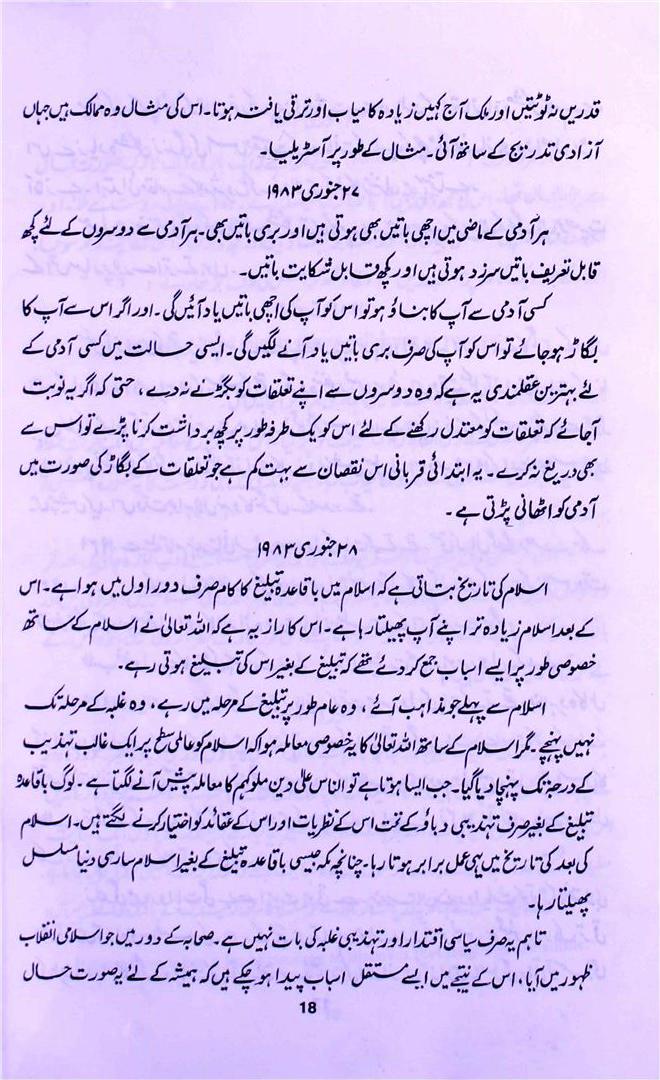 قدریں نہ ٹوٹتیں اور ملک آج کہیں زیادہ کامیاب اور ترقی یافتہ ہوتا۔ اس کی مثال وہ ممالک ہیں جہاں
آزادی تدریج کے ساتھ آئی۔ مثال کے طور پر آسٹریلیا۔
۲۷ جنوری ۱۹۸۳
ہر آدمی کے ماضی میں اچھی باتیں بھی ہوتی ہیں اور بری باتیں بھی۔ ہر آدمی سے دوسروں کے لئے کچھ
قابل تعریف باتیں سرزد ہوتی ہیں اور کچھ قابل شکایت باتیں۔
کسی آدمی سے آپ کا بناؤ ہو تو اس کو آپ کی اچھی باتیں یاد آئیں گی۔ اور اگر اس سے آپ کا
بگاڑ ہو جائے تو اس کو آپ کی صرف بری باتیں یاد آنے لگیں گی۔ ایسی حالت میں کسی آدمی کے
لئے بہترین عقلمندی یہ ہے کہ وہ دوسروں سے اپنے تعلقات کو بگڑنے نہ دے، حتی کہ اگر یہ نوبت
آجائے کہ تعلقات کو معتدل رکھنے کے لئے اس کو یک طرفہ طور پر کچھ برداشت کرنا پڑے تو اس سے
بھی دریغ نہ کرے۔ یہ ابتدائی قربانی اس نقصان سے بہت کم ہے جو تعلقات کے بگاڑ کی صورت میں
آدمی کو اٹھانی پڑتی ہے۔
۲۸ جنوری ۱۹۸۳
اسلام کی تاریخ بتاتی ہے کہ اسلام میں باقاعدہ تبلیغ کا کام صرف دور اول میں ہوا ہے۔ اس
کے بعد اسلام زیادہ تر اپنے آپ پھیلتا رہا ہے۔ اس کا راز یہ ہے کہ اللہ تعالیٰ نے اسلام کے ساتھ
خصوصی طور پر ایسے اسباب جمع کر دئے تھے کہ تبلیغ کے بغیر اس کی تبلیغ ہوتی رہے۔
اسلام سے پہلے جو مذاہب آئے، وہ عام طور پر تبلیغ کے مرحلہ میں رہے، وہ غلبہ کے مرحلہ تک
نہیں پہنچے۔ مگر اسلام کے ساتھ اللہ تعالیٰ کا یہ خصوصی معاملہ ہوا کہ اسلام کو عالمی سطح پر ایک غالب تہذیب
کے درجہ تک پہنچا دیا گیا۔ جب ایسا ہوتا ہے تو الناس علی دین ملوکہم کا معاملہ پیش آنے لگتا ہے۔ لوگ باقاعدہ
تبلیغ کے بغیر صرف تہذیبی دباؤ کے تحت اس کے نظریات اور اس کے عقائد کو اختیار کرنے لگتے ہیں۔ اسلام
کی بعد کی تاریخ میں یہی عمل برابر ہوتا رہا۔ چنانچہ مکہ جیسی باقاعدہ تبلیغ کے بغیر اسلام ساری دنیا مسلسل
پھیلتا رہا۔
تاہم یہ صرف سیاسی اقتدار اور تہذیبی غلبہ کی بات نہیں ہے۔ صحابہ کے دور میں جو اسلامی انقلاب
ظہور میں آیا، اس کے نتیجے میں ایسے مستقل اسباب پیدا ہو چکے ہیں کہ ہمیشہ کے لئے یہ صورت حال
18